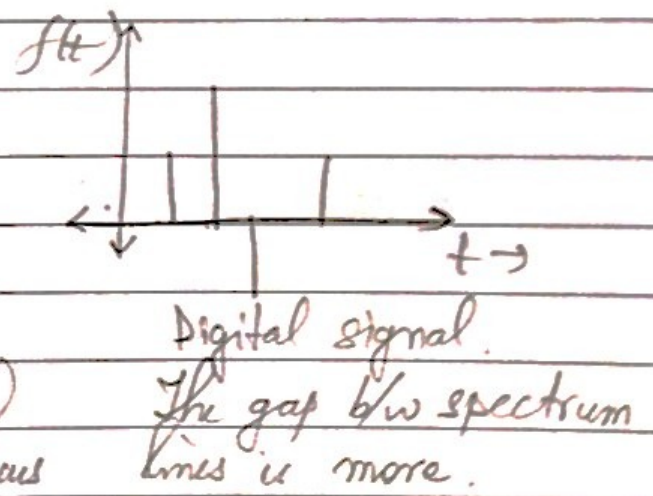 f(t)
t →
Digital signal.
) The gap b/w spectrum
ous lines is more.